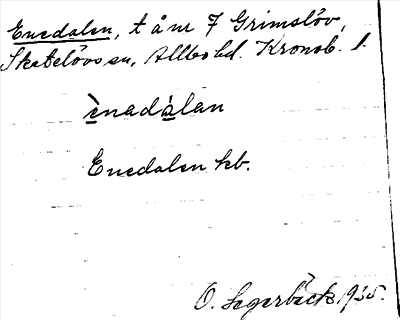 Enedalen, t å nr 7 Grimslöv,
Skatelövs sn, Allbo hd. Kronob. l.
ènadàlan
Enedalen kb.
O. Segerbäck 1935.